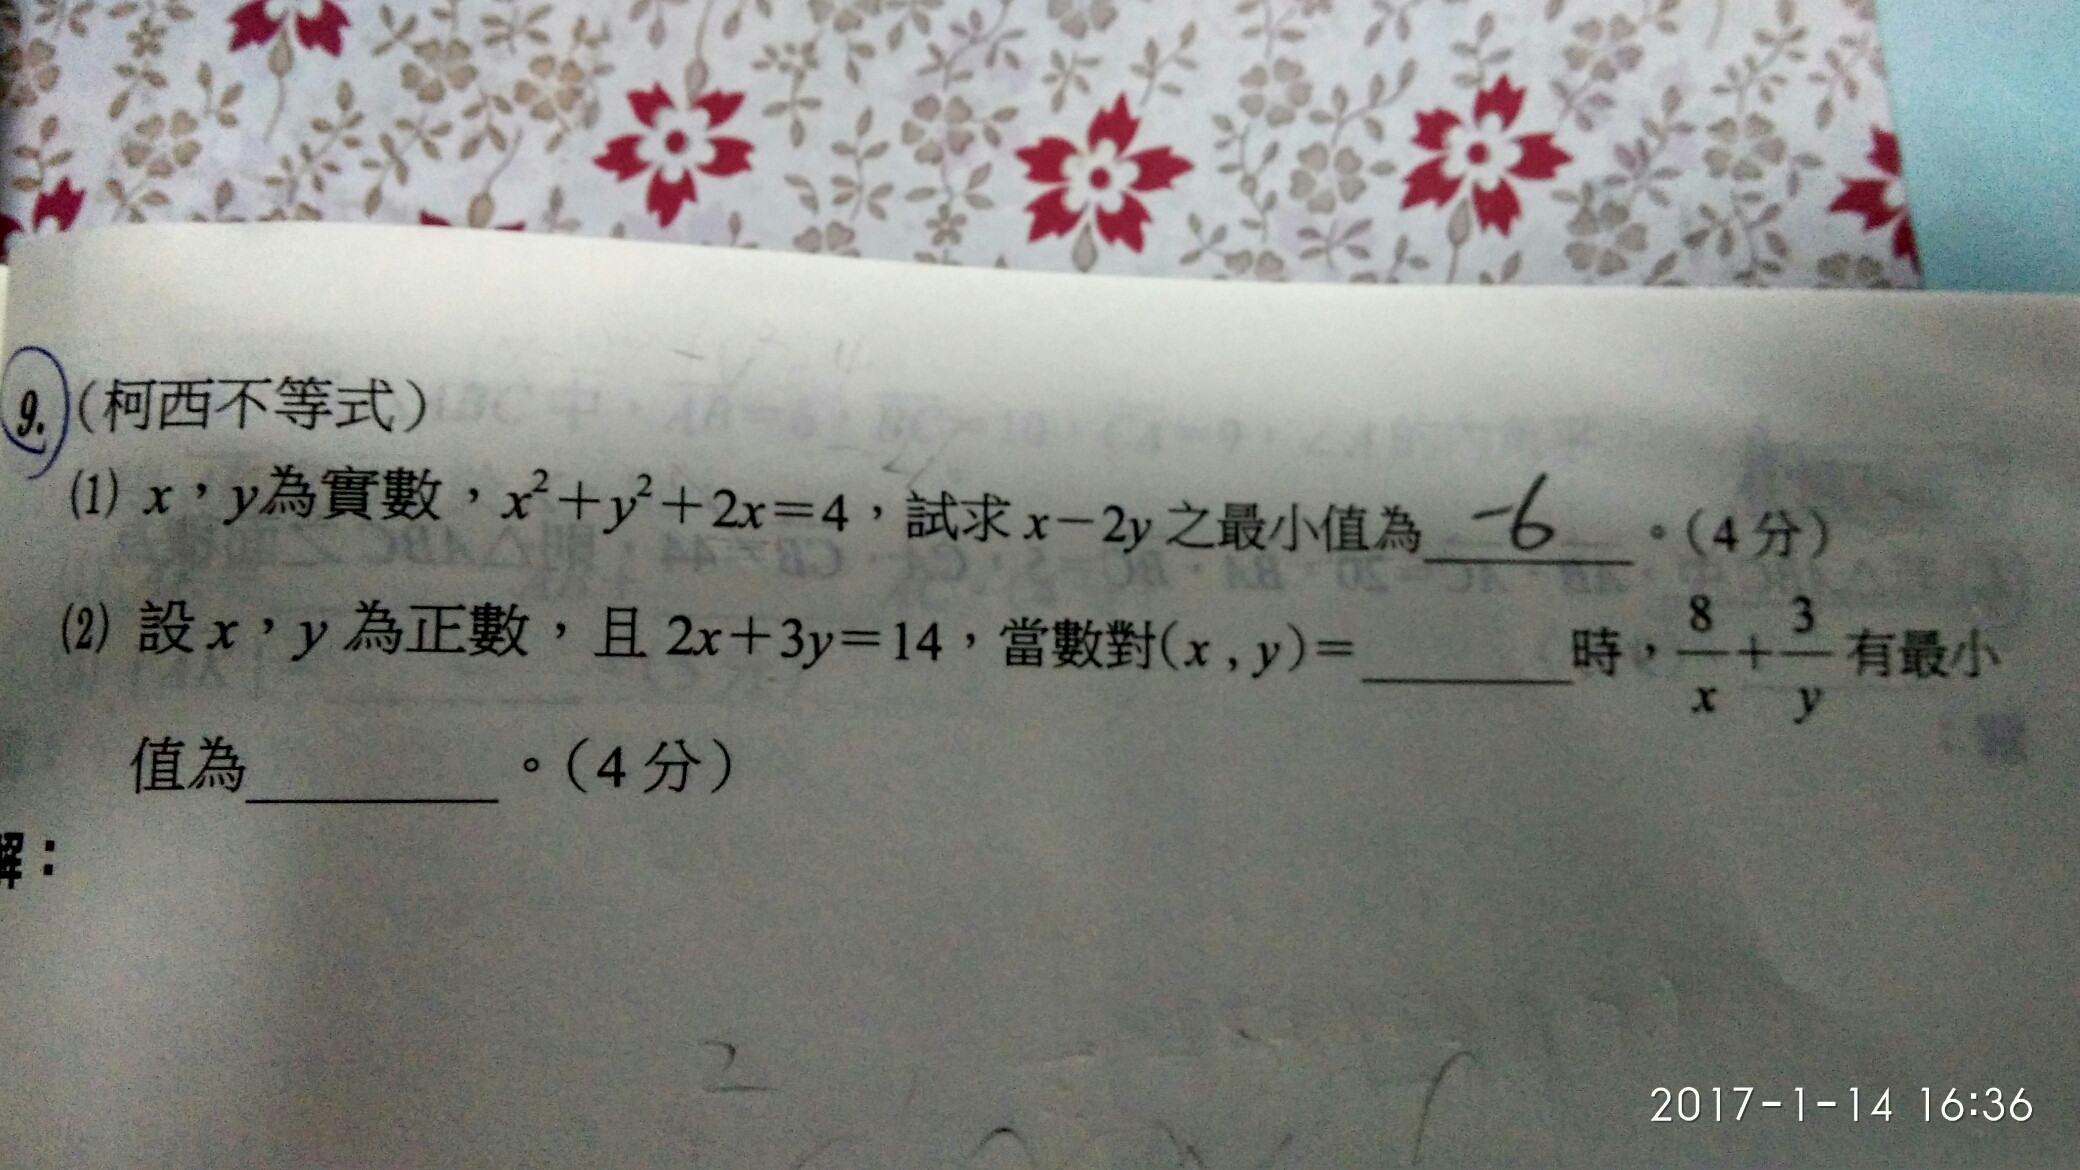 9.(柯西不等式)
(1) x,y為實數,x²+y²+2x=4,試求x-2y之最小值為 -6 。(4分)
(2) 設x,y為正數,且2x+3y=14,當數對(x,y)=______時,8/x+3/y有最小
值為______。(4分)
解:
2017-1-14 16:36